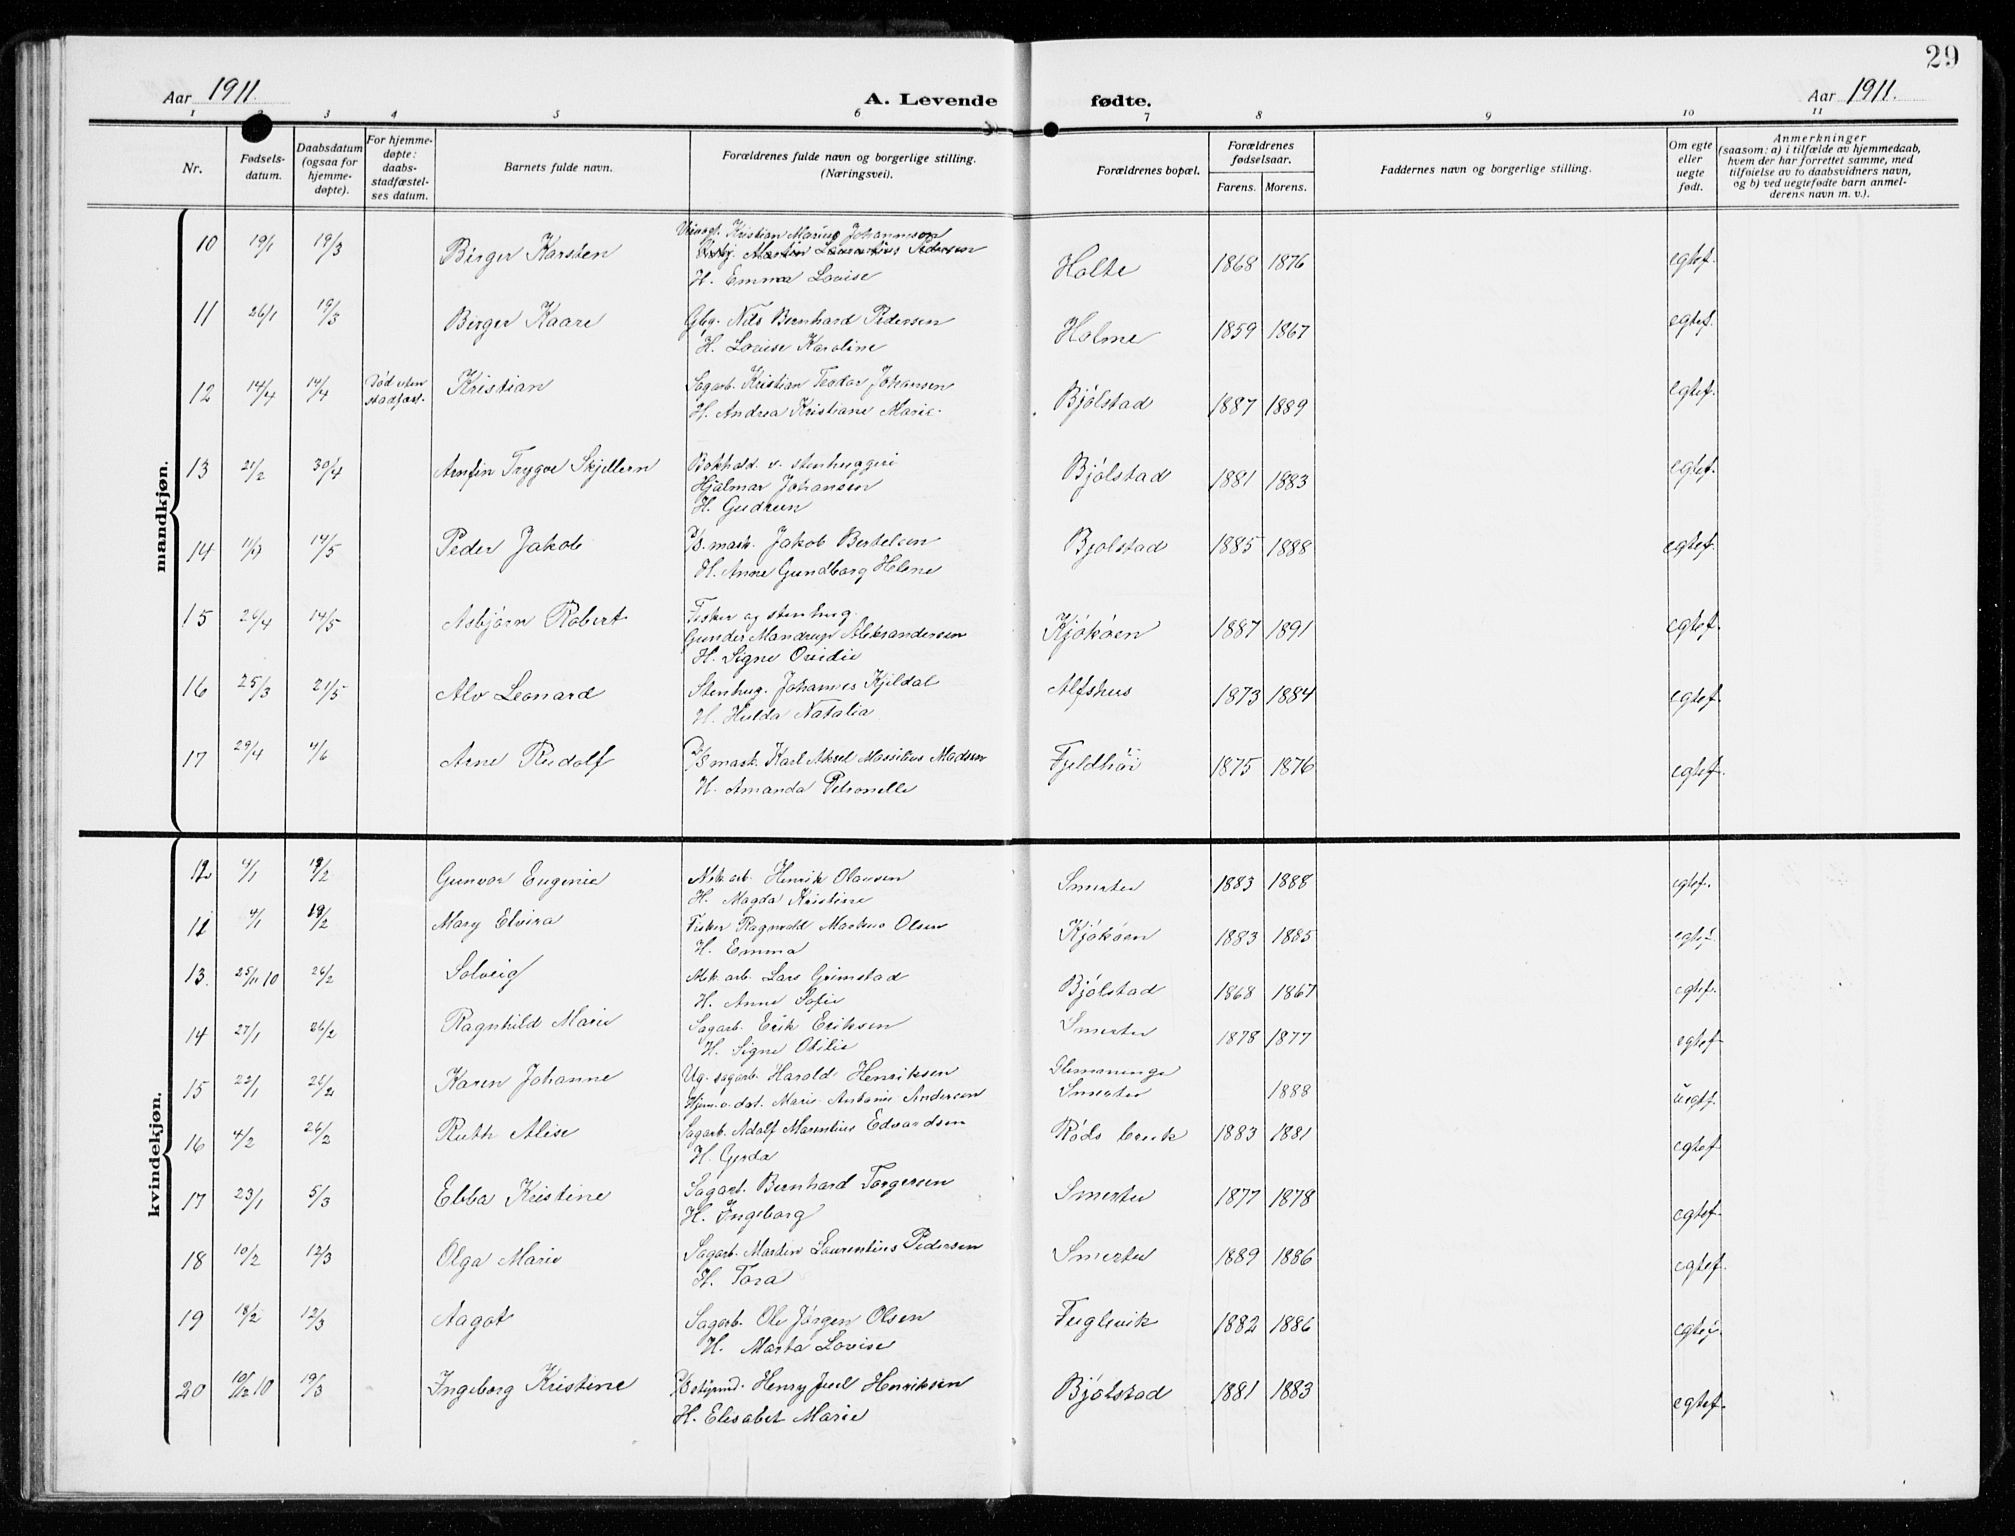 29
Aar 1911.
A. Levende fødte.
Aar 1911.
1 2 3 4 5 6 7 8 9 10 11
Nr.
Fødsels-
datum.
Daabsdatum
(ogsaa for
hjemme-
døpte).
For hjemme-
døpte:
daabs-
stadfæstel-
ses datum.
Barnets fulde navn.
Forældrenes fulde navn og borgerlige stilling.
(Næringsvei).
Forældrenes bopæl.
Forældrenes
fødselsaar.
Farens. Morens.
Faddernes navn og borgerlige stilling.
Om egte
eller
uegte
født.
Anmerkninger
(saasom: a) i tilfælde av hjemmedaab,
hvem der har forrettet samme, med
tilføielse av to daabsvidners navn,
og b) ved uegtefødte barn anmel-
derens navn m. v.).
mandkjøn.
10 19/1 19/3 Birger Karsten Kristian Marius Johannson Holte 1868 1876 egtef.
Martin Laurentius Pedersen
H. Emma Lovise
11 26/1 19/3 Birger Kaare Gbg. Nils Bernhard Pedersen Holme 1859 1867 egtef.
H. Lovise Karoline
12 14/4 14/4 Død uten stadfæst. Kristian Sagarb. Kristian Teodor Johansen Bjølstad 1887 1889 egtef.
H. Andrea Kristiane Marie.
13 21/2 30/4 Arnfin Trygve Skjellern Bokhold. v. stenhuggeri Bjølstad 1881 1883 egtef.
Hjalmar Johansen
H. Gudrun
14 11/3 14/5 Peder Jakob D/S mask. Jakob Bertelsen Bjølstad 1885 1888 egtef.
H. Anne Gundborg Helene
15 26/4 14/5 Asbjørn Robert Fisker og stenhug. Kjøkøen 1887 1891 egtef.
Gunder Mandrup Aleksandersen
H. Signe Ovidie
16 25/3 21/5 Alv Leonard Stenhug. Johannes Kjildal Alfshus 1873 1884 egtef.
H. Hulda Natalia
17 29/4 4/6 Arne Rudolf D/S mask. Karl Aksel Massilius Madsen Fjeldhøi 1875 1876 egtef.
H. Amanda Petronelle
kvindekjøn.
12 4/1 19/2 Gunvor Eugenie Mek. arb. Henrik Olausen Smertu 1883 1888 egtef.
H. Magda Kristine
11 4/1 19/2 Mary Elvira Fisker Ragnvald Markus Olsen Kjøkøen 1883 1885 egtef.
H. Emma
13. 25/11 10 26/2 Solveig Mek. arb. Lars Grimstad Bjølstad 1868 1867 egtef.
H. Anne Sofie
14 27/1 26/2 Ragnhild Marie Sagarb. Erik Eriksen Smertu 1878 1877 egtef.
H. Signe Otilie
15 22/1 26/2 Karen Johanne Ug. sagarb. Harald Henriksen Glemminge
Hjem. v. dat. Marie Antonie Andersen Smertu 1888 uegtf.
16 4/2 26/2 Ruth Alise Sagarb. Adolf Marentius Edvardsen Røds bruk 1883 1881 egtef.
H. Gerda
17 23/1 5/3 Ebba Kristine Sagarb. Bernhard Torgersen Smertu 1877 1878 egtef.
H. Ingeborg
18 10/2 12/3 Olga Marie Sagarb. Martin Laurentius Pedersen Smertu 1889 1886 egtef.
H. Tora
19 18/2 12/3 Aagot Sagarb. Ole Jørgen Olsen Fuglevik 1882 1886 egtef.
H. Marta Lovise
20 10/12 10 19/3 Ingeborg Kristine Henry Juel Henriksen Bjølstad 1881 1883 egtef.
H. Elisabet Marie